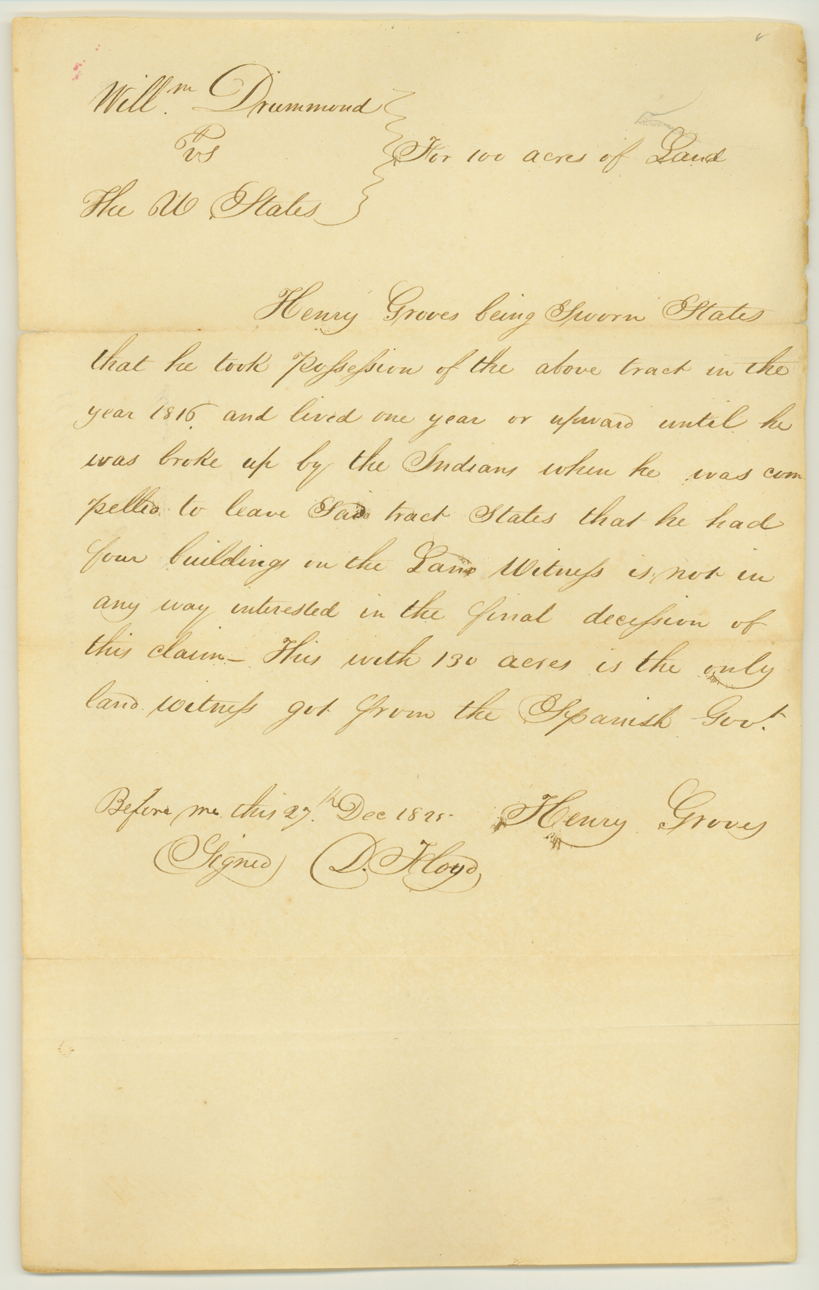 Will.m Drummond
vs
For 100 acres of Land
The U States
Henry Groves being Sworn States
that he took possession of the above tract in the
year 1816 and lived one year or upward until he
was broke up by the Indians when he was com
pelled to leave Said tract States that he had
four buildings on the Land Witness is not in
any way interested in the final decession of
this claim – This with 130 acres is the only
land witness got from the Spanish Gov.t
Before me this 27.th Dec 1825
Henry Groves
(Signed) D. Floyd